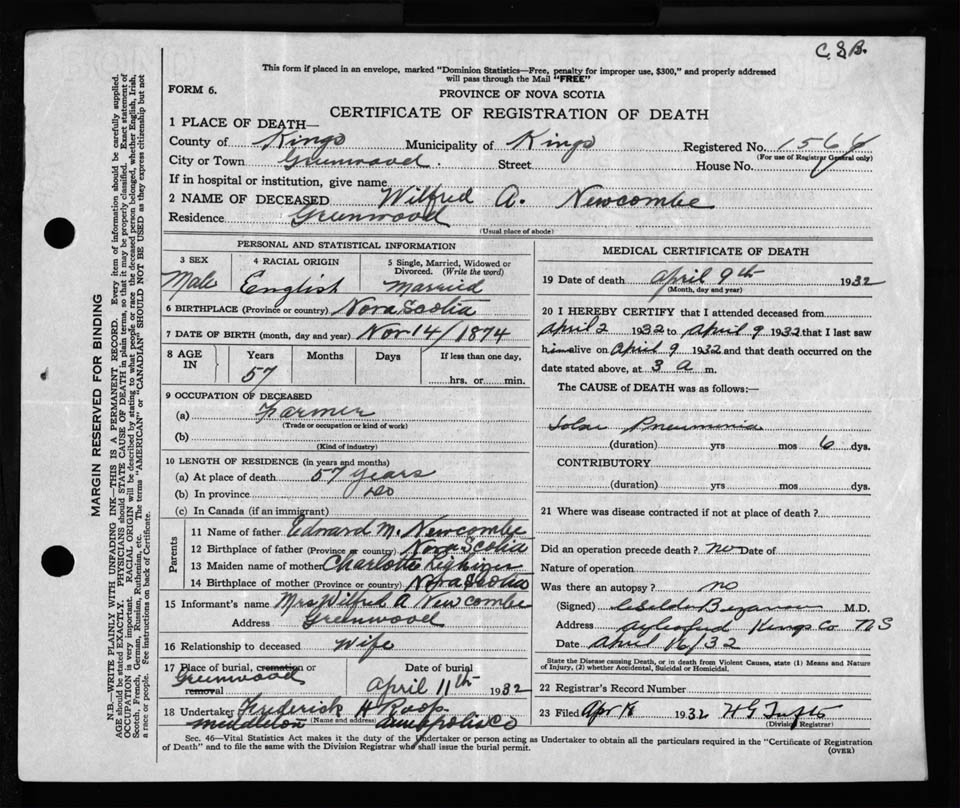 C.S.B.
This form if placed in an envelope, marked "Dominion Statistics—Free, penalty for improper use, $300," and properly addressed
will pass through the Mail "FREE"
FORM 6.
PROVINCE OF NOVA SCOTIA
CERTIFICATE OF REGISTRATION OF DEATH
1 PLACE OF DEATH—
County of Kings Municipality of Kings Registered No. 156
(For use of Registrar General only)
City or Town Greenwood Street House No.
If in hospital or institution, give name
2 NAME OF DECEASED Wilfred A. Newcombe
Residence Greenwood
(Usual place of abode)
PERSONAL AND STATISTICAL INFORMATION
3 SEX Male
4 RACIAL ORIGIN English
5 Single, Married, Widowed or
Divorced. (Write the word)
Married
6 BIRTHPLACE (Province or country) Nova Scotia
7 DATE OF BIRTH (month, day and year) Nov 14/1874
8 AGE IN Years Months Days If less than one day,
57 hrs. or min.
9 OCCUPATION OF DECEASED
(a) Farmer
(Trade or occupation or kind of work)
(b)
(Kind of industry)
10 LENGTH OF RESIDENCE (in years and months)
(a) At place of death 57 years
(b) In province do
(c) In Canada (if an immigrant)
Parents
11 Name of father Edward M. Newcombe
12 Birthplace of father (Province or country) Nova Scotia
13 Maiden name of mother Charlotte
14 Birthplace of mother (Province or country) Nova Scotia
15 Informant's name Mrs Wilfred A Newcombe
Address Greenwood
16 Relationship to deceased Wife
17 Place of burial, cremation or
removal
Greenwood
Date of burial
April 11th 1932
18 Undertaker Frederick H Roop
(Name and address)
Middleton Annapolis Co
MEDICAL CERTIFICATE OF DEATH
19 Date of death April 9th 1932
(Month, day and year)
20 I HEREBY CERTIFY that I attended deceased from
April 2 1932 to April 9 1932 that I last saw
him alive on April 9 1932 and that death occurred on the
date stated above, at 3 a m.
The CAUSE of DEATH was as follows:—
Lobar Pneumonia
(duration) yrs mos 6 dys.
CONTRIBUTORY
(duration) yrs mos dys.
21 Where was disease contracted if not at place of death?
Did an operation precede death? no Date of
Nature of operation
Was there an autopsy? no
(Signed) M.D.
Address Aylesford Kings Co NS
Date April 16/32
State the Disease causing Death, or in death from Violent Causes, state (1) Means and Nature
of Injury, (2) whether Accidental, Suicidal or Homicidal.
22 Registrar's Record Number
23 Filed Apr 18 1932 H G Tufts
(Division Registrar)
Sec. 46—Vital Statistics Act makes it the duty of the Undertaker or person acting as Undertaker to obtain all the particulars required in the "Certificate of Registration
of Death" and to file the same with the Division Registrar who shall issue the burial permit.
(OVER)
MARGIN RESERVED FOR BINDING
N.B.—WRITE PLAINLY WITH UNFADING INK—THIS IS A PERMANENT RECORD. Every item of information should be carefully supplied.
AGE should be stated EXACTLY. PHYSICIANS should STATE CAUSE OF DEATH in plain terms, so that it may be properly classified. Exact statement of
OCCUPATION is very important. RACIAL ORIGIN will be described by stating to what people or race the deceased person belonged, whether English, Irish,
Scotch, French, German, Russian, Ruthenian, etc. The terms "AMERICAN" or "CANADIAN" SHOULD NOT BE USED as they express citizenship but not
a race or people. See instructions on back of Certificate.